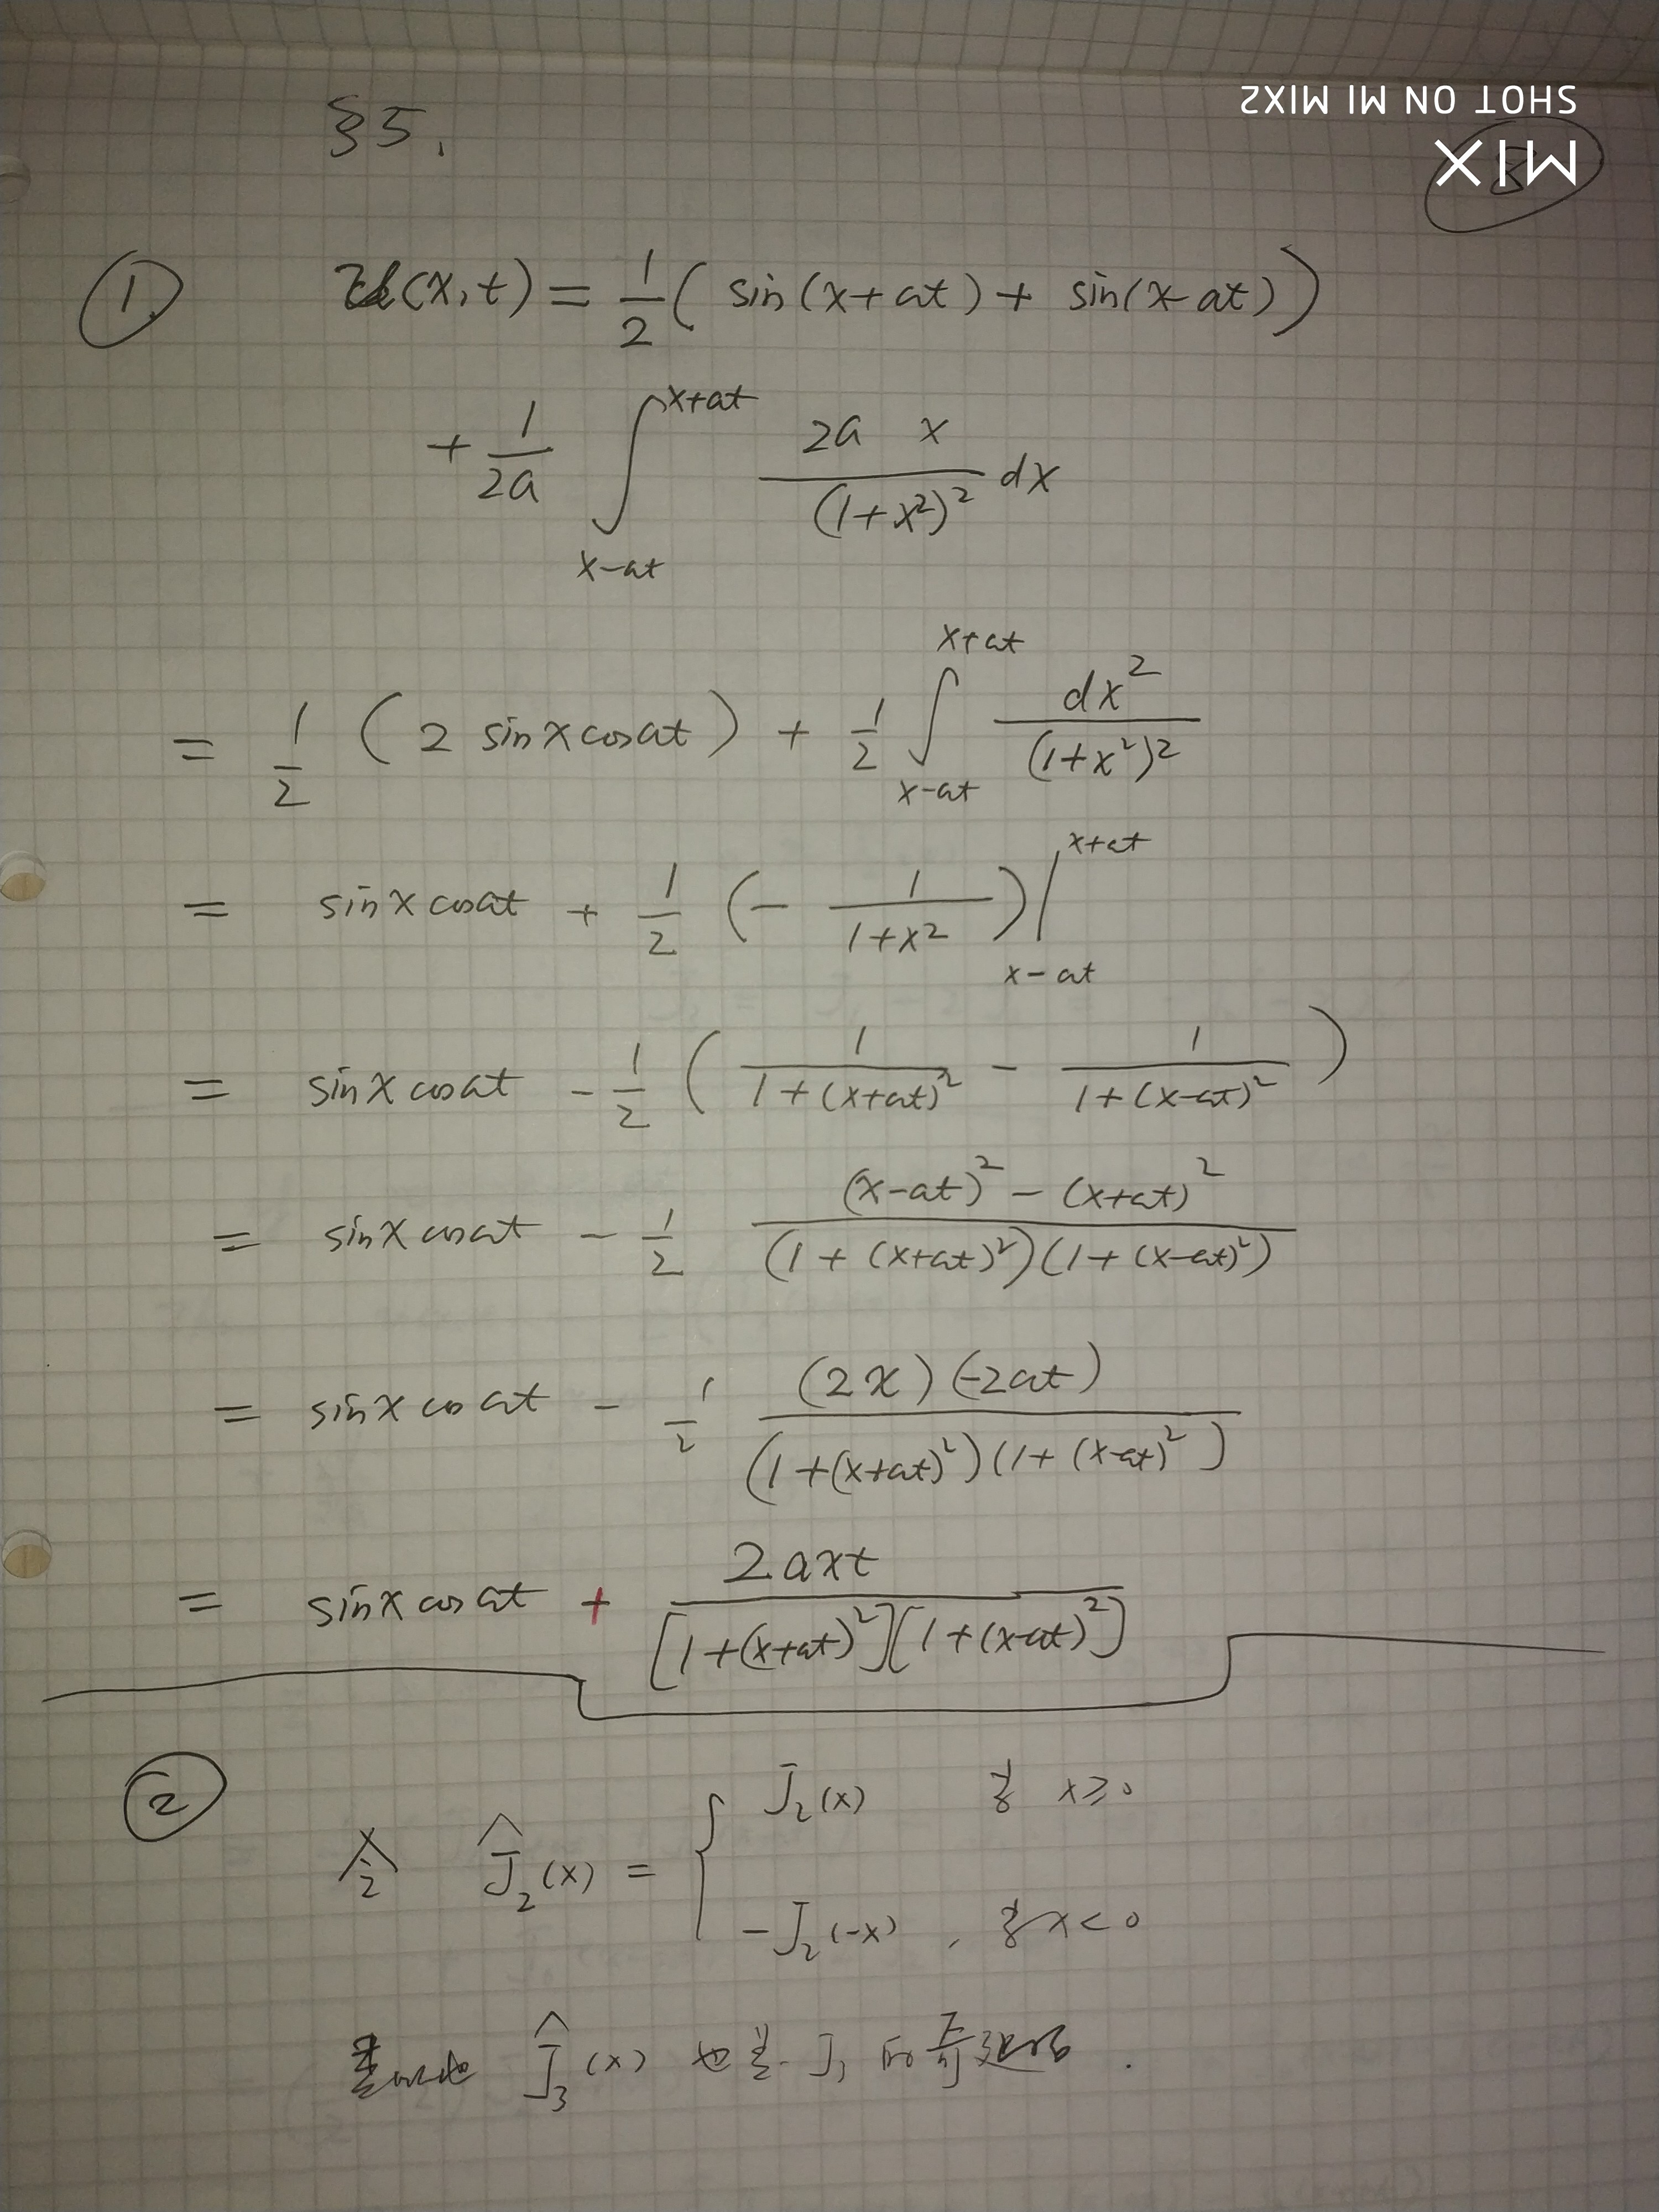 SHOT ON MI MIX2
MIX
§5.
① u(x,t) = 1/2 ( sin(x+at) + sin(x-at) )
+ 1/2a ∫_{x-at}^{x+at} 2a x / (1+x²)² dx
= 1/2 ( 2 sinx cosat ) + 1/2 ∫_{x-at}^{x+at} dx² / (1+x²)²
= sinx cosat + 1/2 ( - 1/(1+x²) ) |_{x-at}^{x+at}
= sinx cosat - 1/2 ( 1/(1+(x+at)²) - 1/(1+(x-at)²) )
= sinx cosat - 1/2 ((x-at)² - (x+at)²) / (1+(x+at)²)(1+(x-at)²)
= sinx cosat - 1/2 (2x)(-2at) / (1+(x+at)²)(1+(x-at)²)
= sinx cosat + 2axt / [1+(x+at)²][1+(x-at)²]
② 令 Ĵ₂(x) = { J₂(x) 若 x≥0
-J₂(-x), 若 x<0
类似地 Ĵ₃(x) 也是 J₃ 的奇延拓.